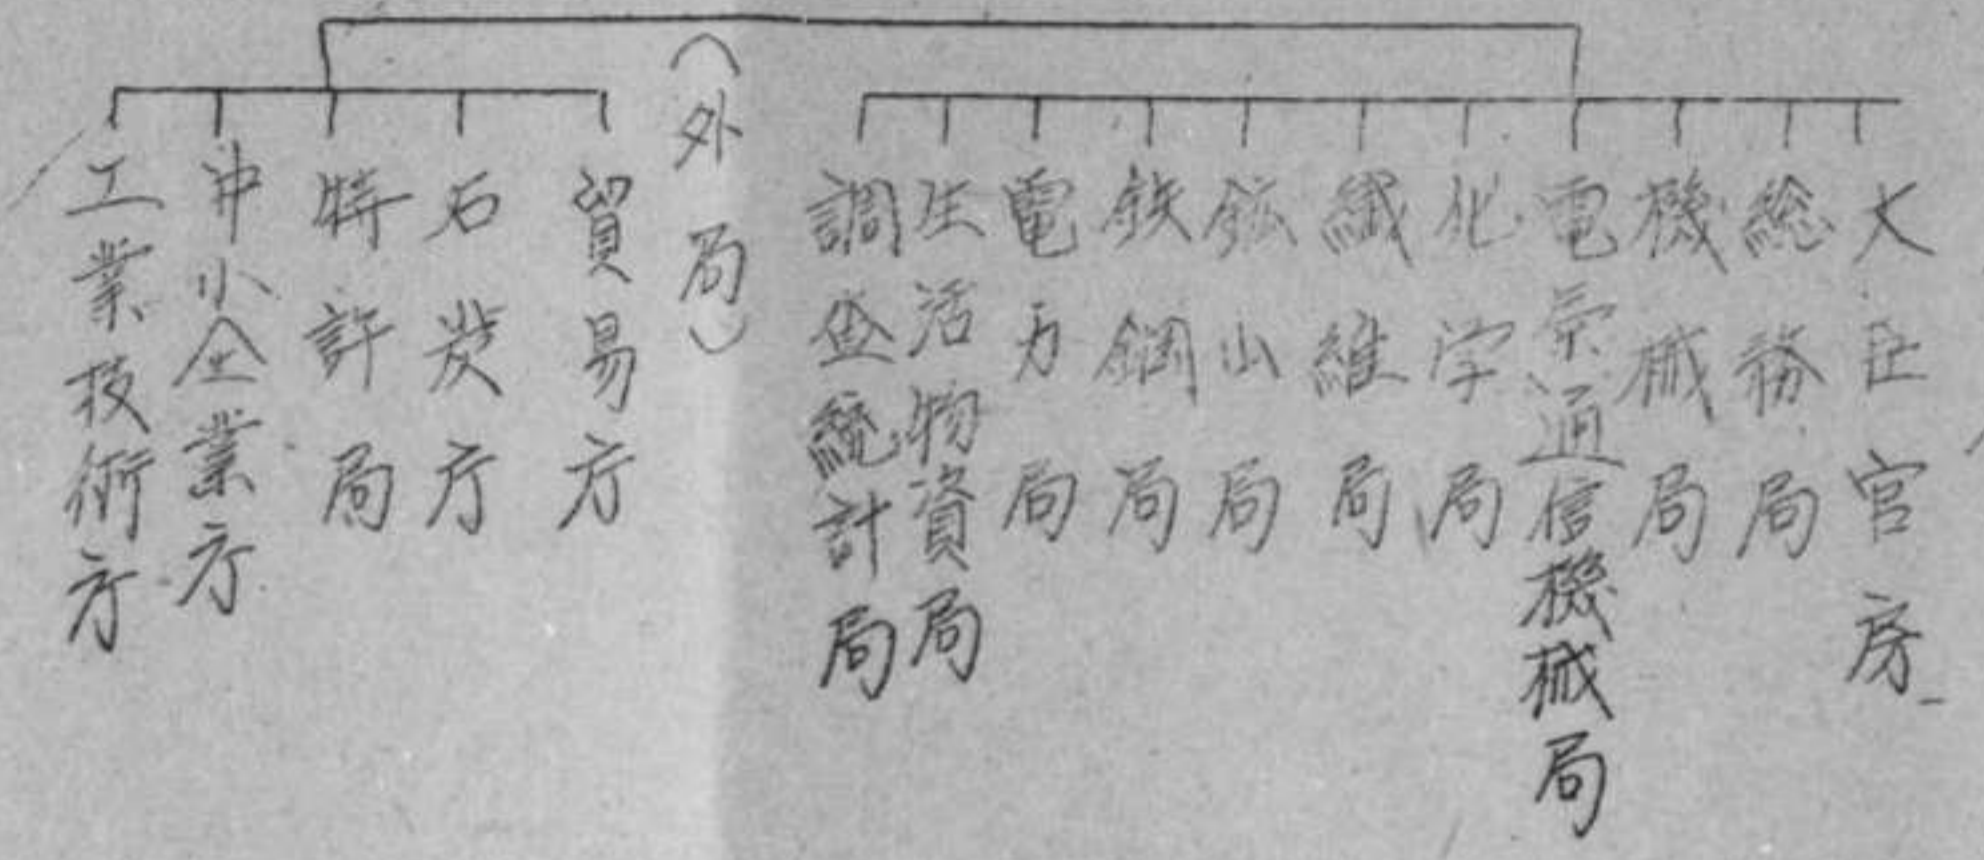 大臣官房
総務局
機械局
電気通信機械局
化学局
繊維局
鉱山局
鉄鋼局
電力局
生活物資局
調査統計局
（外局）
貿易庁
石炭庁
特許局
中小企業庁
工業技術庁